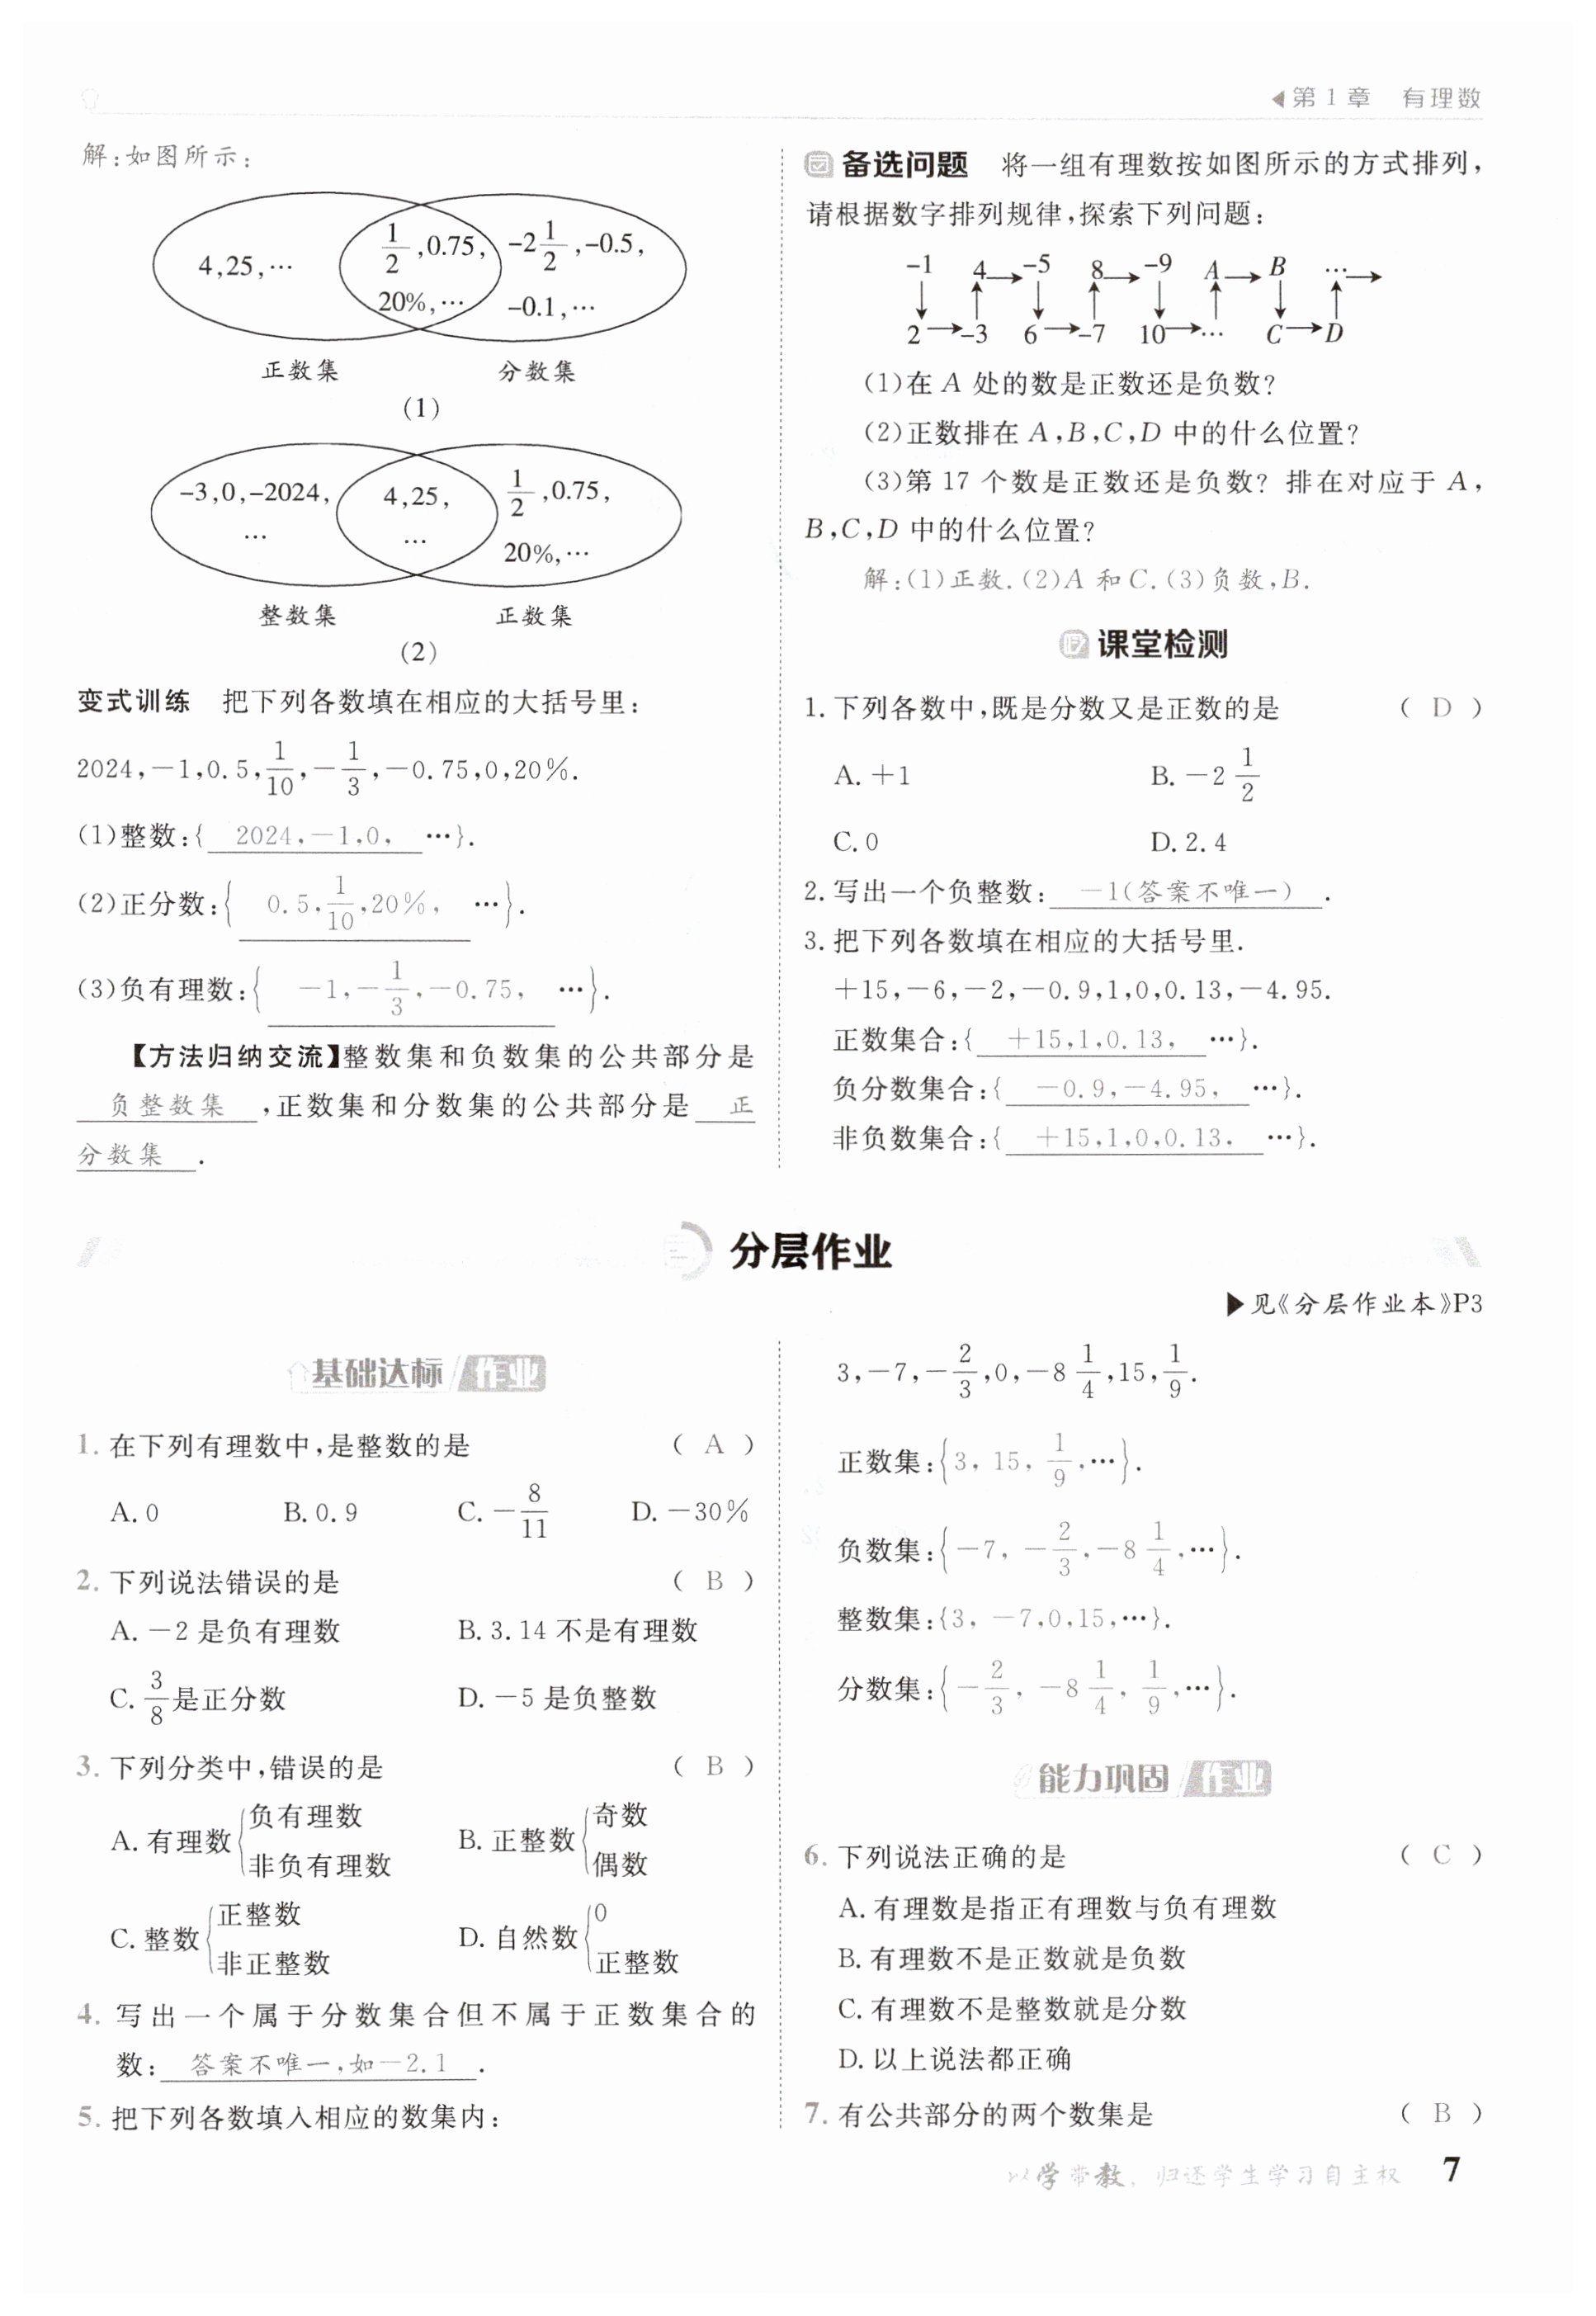 ◀第1章　有理数
解:如图所示:
4,25,…
1/2,0.75,
20%,…
-2 1/2,-0.5,
-0.1,…
正数集　分数集
(1)
-3,0,-2024,
…
4,25,
…
1/2,0.75,
20%,…
整数集　正数集
(2)
变式训练　把下列各数填在相应的大括号里:
2024,-1,0.5,1/10,-1/3,-0.75,0,20%.
(1)整数:{ 2024,-1,0, …}.
(2)正分数:{ 0.5,1/10,20%, …}.
(3)负有理数:{ -1,-1/3,-0.75, …}.
【方法归纳交流】整数集和负数集的公共部分是
负整数集,正数集和分数集的公共部分是 正
分数集.
备选问题　将一组有理数按如图所示的方式排列,
请根据数字排列规律,探索下列问题:
-1 4→-5 8→-9 A→B …→
↓ ↑ ↓ ↑ ↓ ↑ ↓ ↑
2→-3 6→-7 10→… C→D
(1)在A处的数是正数还是负数?
(2)正数排在A,B,C,D中的什么位置?
(3)第17个数是正数还是负数?排在对应于A,
B,C,D中的什么位置?
解:(1)正数.(2)A和C.(3)负数,B.
课堂检测
1.下列各数中,既是分数又是正数的是 ( D )
A.+1　B.-2 1/2
C.0　D.2.4
2.写出一个负整数: -1(答案不唯一) .
3.把下列各数填在相应的大括号里.
+15,-6,-2,-0.9,1,0,0.13,-4.95.
正数集合:{ +15,1,0.13, …}.
负分数集合:{ -0.9,-4.95, …}.
非负数集合:{ +15,1,0,0.13, …}.
分层作业
▶见《分层作业本》P3
基础达标 作业
1.在下列有理数中,是整数的是 ( A )
A.0　B.0.9　C.-8/11　D.-30%
2.下列说法错误的是 ( B )
A.-2是负有理数　B.3.14不是有理数
C.3/8是正分数　D.-5是负整数
3.下列分类中,错误的是 ( B )
A.有理数{负有理数 非负有理数　B.正整数{奇数 偶数
C.整数{正整数 非正整数　D.自然数{0 正整数
4.写出一个属于分数集合但不属于正数集合的
数: 答案不唯一,如-2.1 .
5.把下列各数填入相应的数集内:
3,-7,-2/3,0,-8 1/4,15,1/9.
正数集:{3,15,1/9,…}.
负数集:{-7,-2/3,-8 1/4,…}.
整数集:{3,-7,0,15,…}.
分数集:{-2/3,-8 1/4,1/9,…}.
能力巩固 作业
6.下列说法正确的是 ( C )
A.有理数是指正有理数与负有理数
B.有理数不是正数就是负数
C.有理数不是整数就是分数
D.以上说法都正确
7.有公共部分的两个数集是 ( B )
以学带教,归还学生学习自主权　7